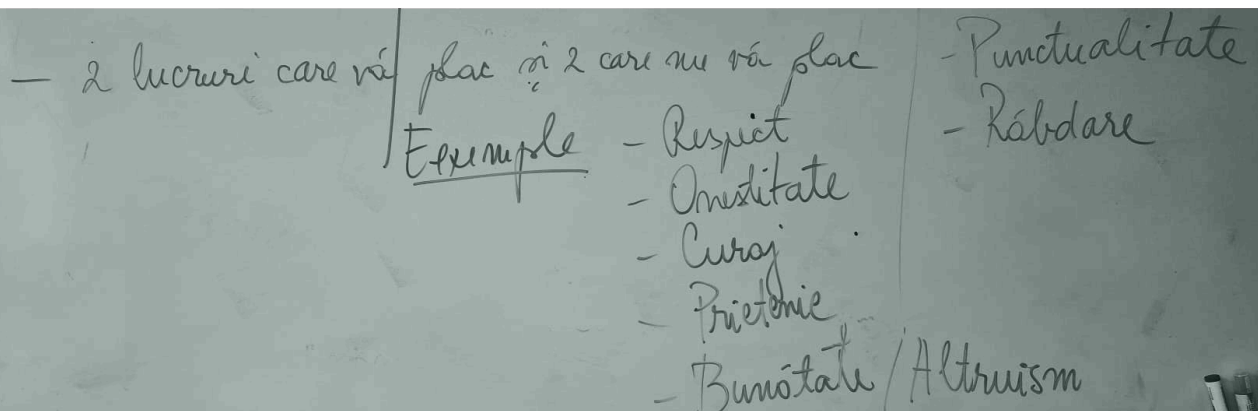 — 2 lucruri care vă plac și 2 care nu vă plac
Exemple - Respect
- Onestitate
- Curaj
- Prietenie
- Bunătate / Altruism
- Punctualitate
- Răbdare